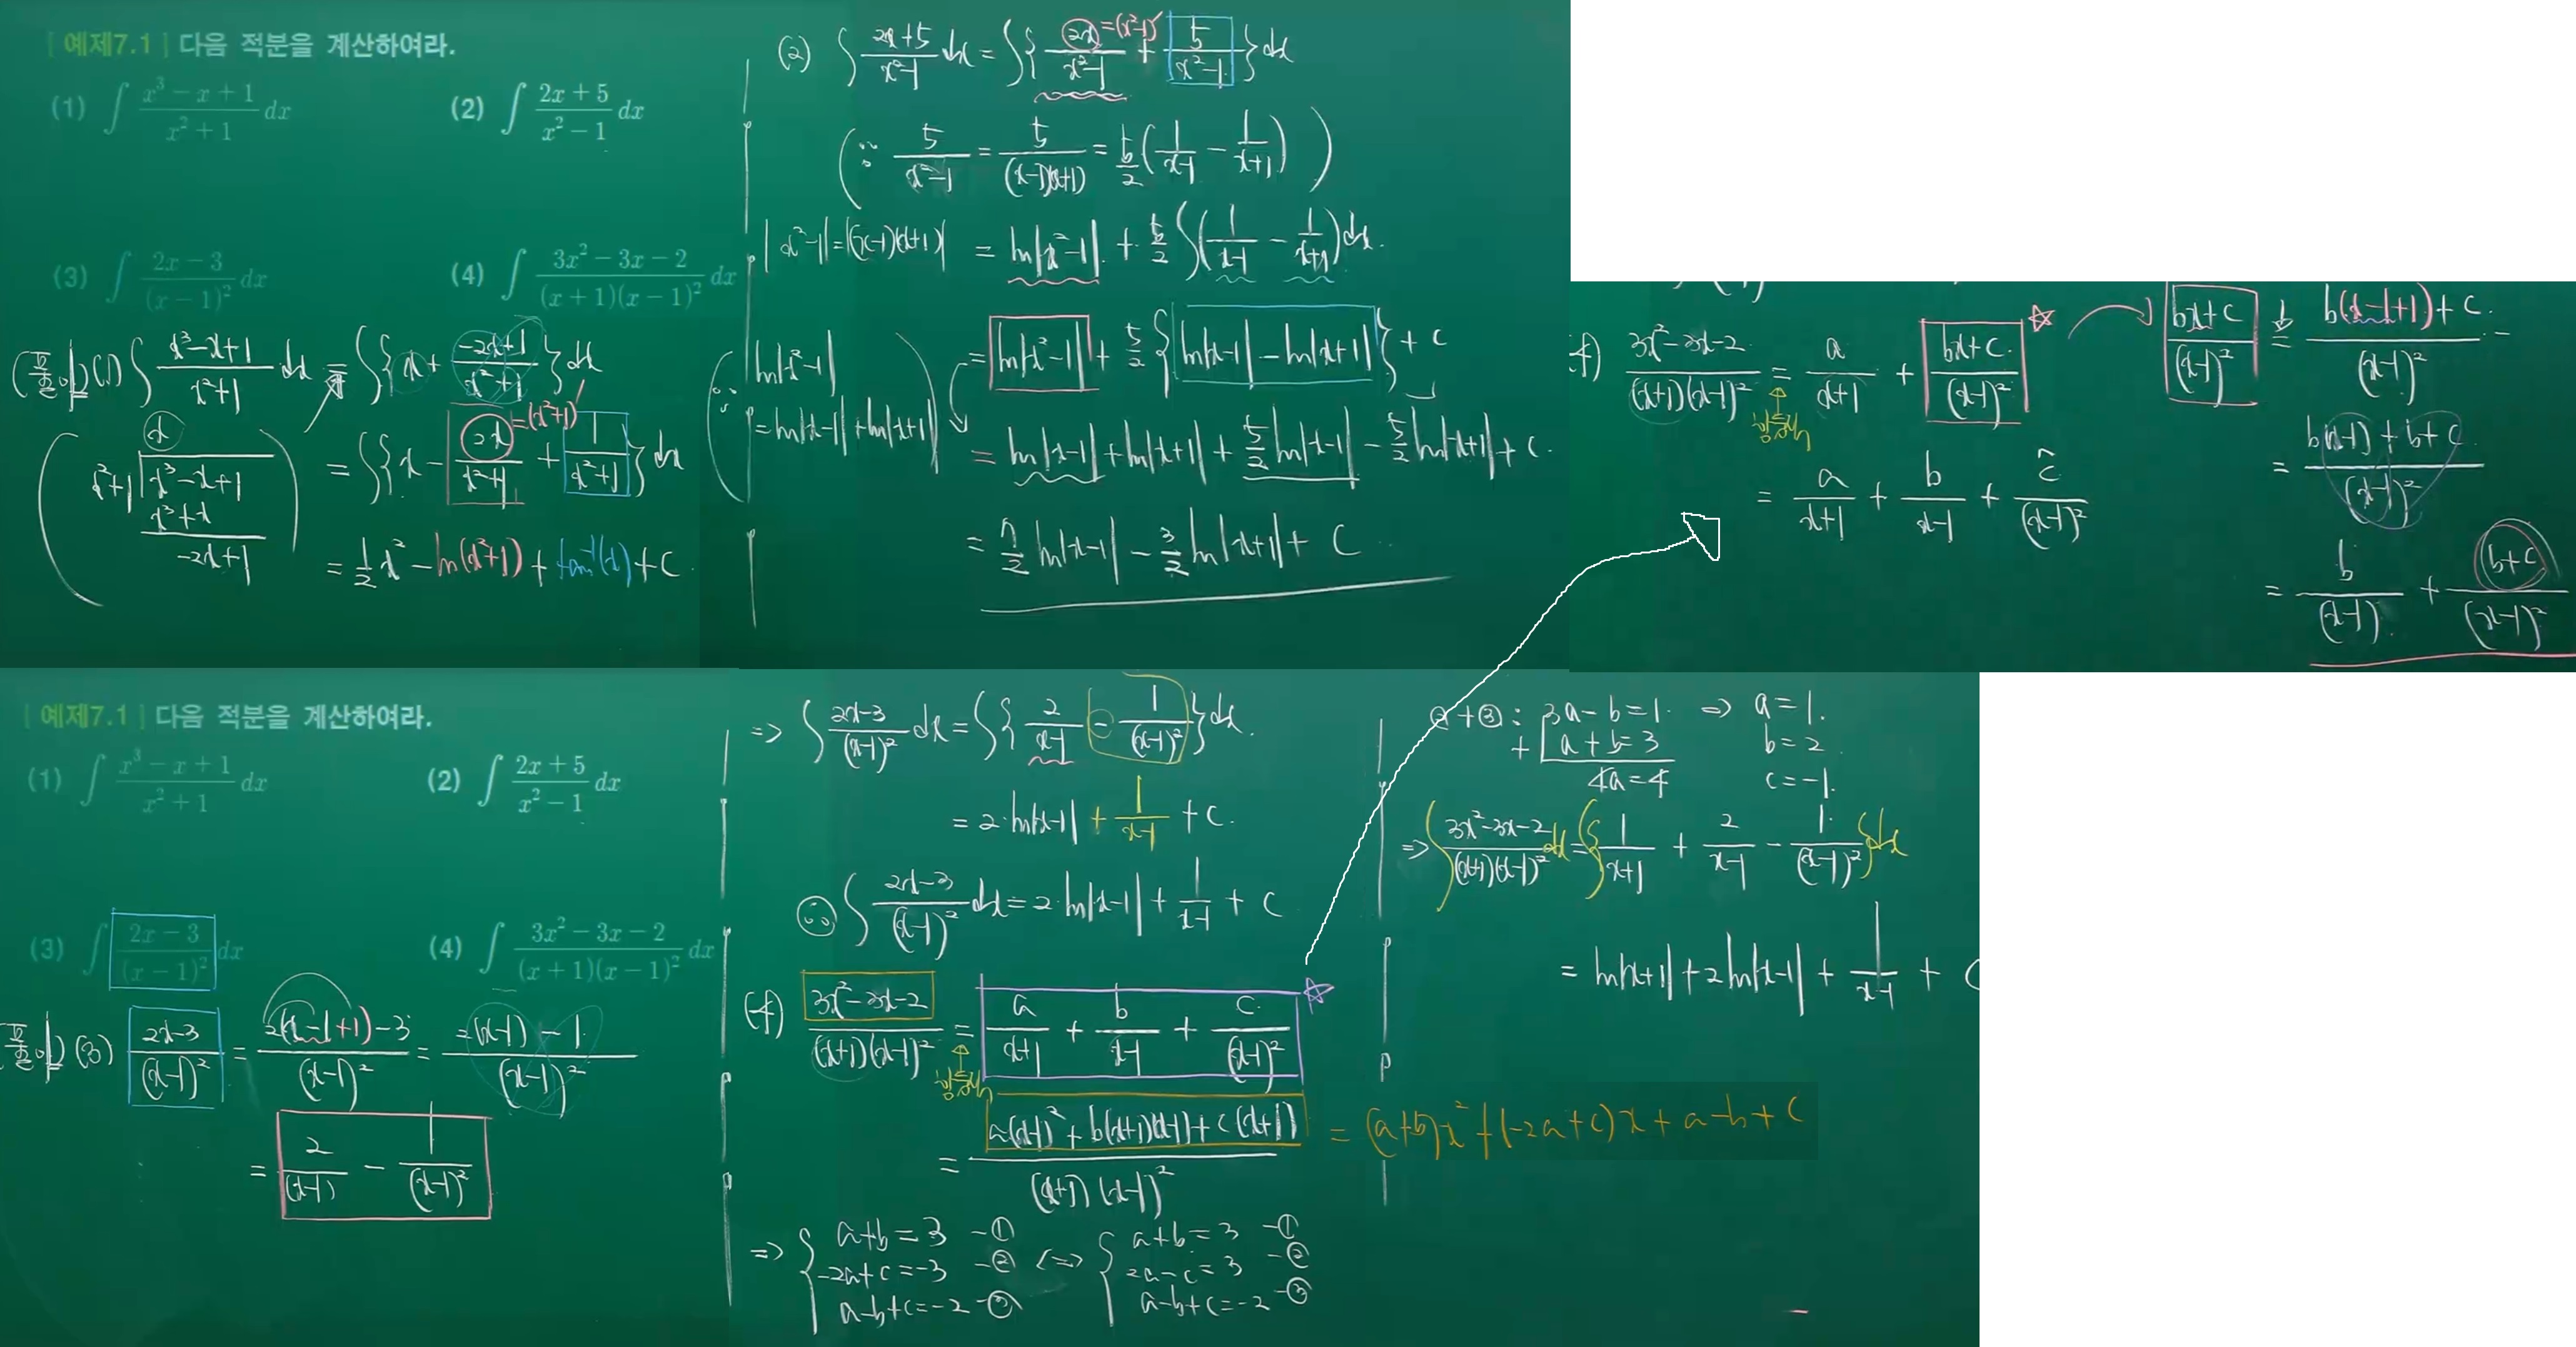 [예제7.1] 다음 적분을 계산하여라.
(1) ∫ (x³ − x + 1)/(x² + 1) dx
(2) ∫ (2x + 5)/(x² − 1) dx
(3) ∫ (2x − 3)/(x − 1)² dx
(4) ∫ (3x² − 3x − 2)/((x + 1)(x − 1)²) dx
(풀이) (1) ∫ (x³−x+1)/(x²+1) dx = ∫{x + (−2x+1)/(x²+1)}dx
x
x²+1 | x³−x+1
x³+x
−2x+1
= ∫{x − 2x/(x²+1) + 1/(x²+1)}dx
=(x²+1)′
= 1/2 x² − ln(x²+1) + tan⁻¹(x) + C
(2) ∫ (2x+5)/(x²−1) dx = ∫{2x/(x²−1) + 5/(x²−1)}dx
=(x²−1)′
(∵ 5/(x²−1) = 5/((x−1)(x+1)) = 5/2 (1/(x−1) − 1/(x+1)))
|x²−1| = |(x−1)(x+1)|
= ln|x²−1| + 5/2 ∫(1/(x−1) − 1/(x+1))dx.
= ln|x²−1| + 5/2 {ln|x−1| − ln|x+1|} + C
(∵ ln|x²−1|
= ln|x−1| + ln|x+1|)
= ln|x−1| + ln|x+1| + 5/2 ln|x−1| − 5/2 ln|x+1| + C.
= 7/2 ln|x−1| − 3/2 ln|x+1| + C
(4) (3x²−3x−2)/((x+1)(x−1)²) = a/(x+1) + (bx+c)/(x−1)² ☆
= a/(x+1) + b/(x−1) + c̃/(x−1)²
(bx+c)/(x−1)² = (b(x−1+1)+c)/(x−1)²
= (b(x−1)+b+c)/(x−1)²
= b/(x−1) + (b+c)/(x−1)²
[예제7.1] 다음 적분을 계산하여라.
(1) ∫ (x³ − x + 1)/(x² + 1) dx
(2) ∫ (2x + 5)/(x² − 1) dx
(3) ∫ (2x − 3)/(x − 1)² dx
(4) ∫ (3x² − 3x − 2)/((x + 1)(x − 1)²) dx
(풀이) (3) (2x−3)/(x−1)² = (2(x−1+1)−3)/(x−1)² = (2(x−1)−1)/(x−1)²
= 2/(x−1) − 1/(x−1)²
=> ∫ (2x−3)/(x−1)² dx = ∫{2/(x−1) − 1/(x−1)²}dx.
= 2·ln|x−1| + 1/(x−1) + C.
∴ ∫ (2x−3)/(x−1)² dx = 2·ln|x−1| + 1/(x−1) + C
(4) (3x²−3x−2)/((x+1)(x−1)²) = a/(x+1) + b/(x−1) + c/(x−1)² ☆
= (a(x−1)² + b(x+1)(x−1) + c(x+1))/((x+1)(x−1)²)
= (a+b)x² + (−2a+c)x + a−b+c
=> { a+b=3 −① <=> { a+b=3 −①
−2a+c=−3 −② 2a−c=3 −②
a−b+c=−2 −③ a−b+c=−2 −③
②+③: 3a−b=1. => a=1.
+ a+b=3 b=2
4a=4 c=−1.
=> ∫ (3x²−3x−2)/((x+1)(x−1)²) dx = ∫{1/(x+1) + 2/(x−1) − 1/(x−1)²}dx
= ln|x+1| + 2ln|x−1| + 1/(x−1) + C